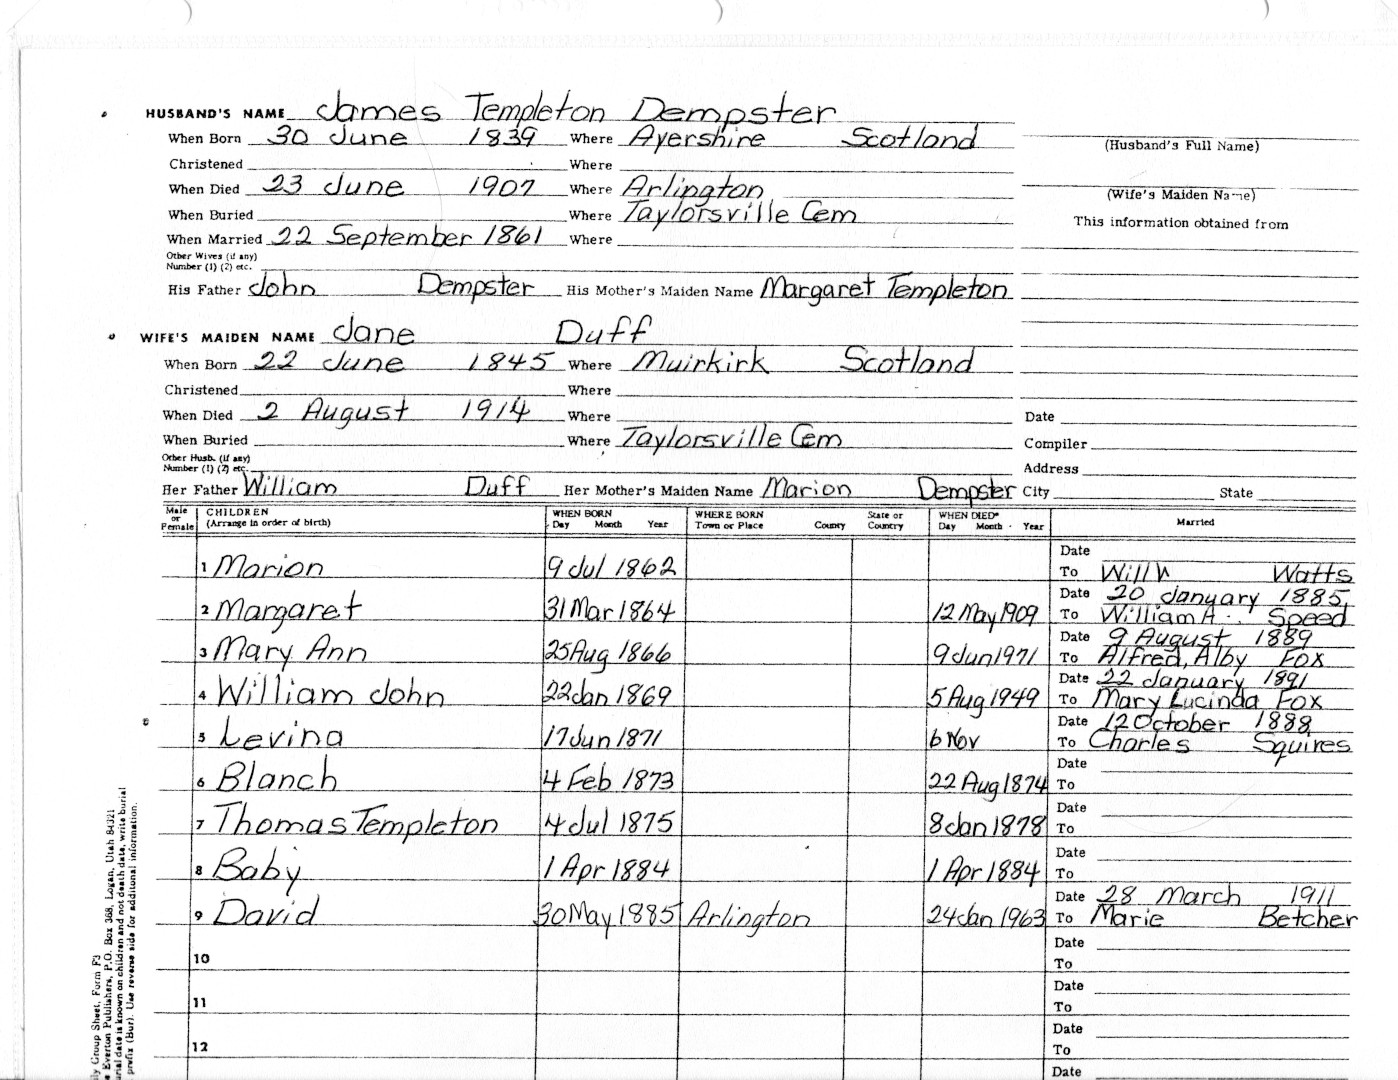 HUSBAND'S NAME James Templeton Dempster
When Born 30 June 1839 Where Ayershire Scotland
(Husband's Full Name)
Christened Where
When Died 23 June 1907 Where Arlington
(Wife's Maiden Name)
When Buried Where Taylorsville Cem
This information obtained from
When Married 22 September 1861 Where
Other Wives (if any)
Number (1) (2) etc.
His Father John Dempster His Mother's Maiden Name Margaret Templeton
WIFE'S MAIDEN NAME Jane Duff
When Born 22 June 1845 Where Muirkirk Scotland
Christened Where
When Died 2 August 1914 Where Date
When Buried Where Taylorsville Cem Compiler
Other Husb. (if any)
Number (1) (2) etc. Address
Her Father William Duff Her Mother's Maiden Name Marion Dempster City State
Male or Female CHILDREN (Arrange in order of birth) WHEN BORN Day Month Year WHERE BORN Town or Place County State or Country WHEN DIED* Day Month Year Married
Date
1 Marion 9 Jul 1862 To Will W Watts
Date 20 January 1885
2 Margaret 31 Mar 1864 12 May 1909 To William A. Speed
Date 9 August 1889
3 Mary Ann 25 Aug 1866 9 Jun 1971 To Alfred, Alby Fox
Date 22 January 1891
4 William John 22 Jan 1869 5 Aug 1949 To Mary Lucinda Fox
Date 12 October 1888
5 Levina 17 Jun 1871 6 Nov To Charles Squires
Date
6 Blanch 4 Feb 1873 22 Aug 1874 To
Date
7 Thomas Templeton 4 Jul 1875 8 Jan 1878 To
Date
8 Baby 1 Apr 1884 1 Apr 1884 To
Date 28 March 1911
9 David 30 May 1885 Arlington 24 Jan 1963 To Marie Betcher
Date
10 To
Date
11 To
Date
12 To
Date
ly Group Sheet, Form F3
e Everton Publishers, P.O. Box 368, Logan, Utah 84321
urial date is known on children and not death date, write burial
prefix (Bur). Use reverse side for additional information.